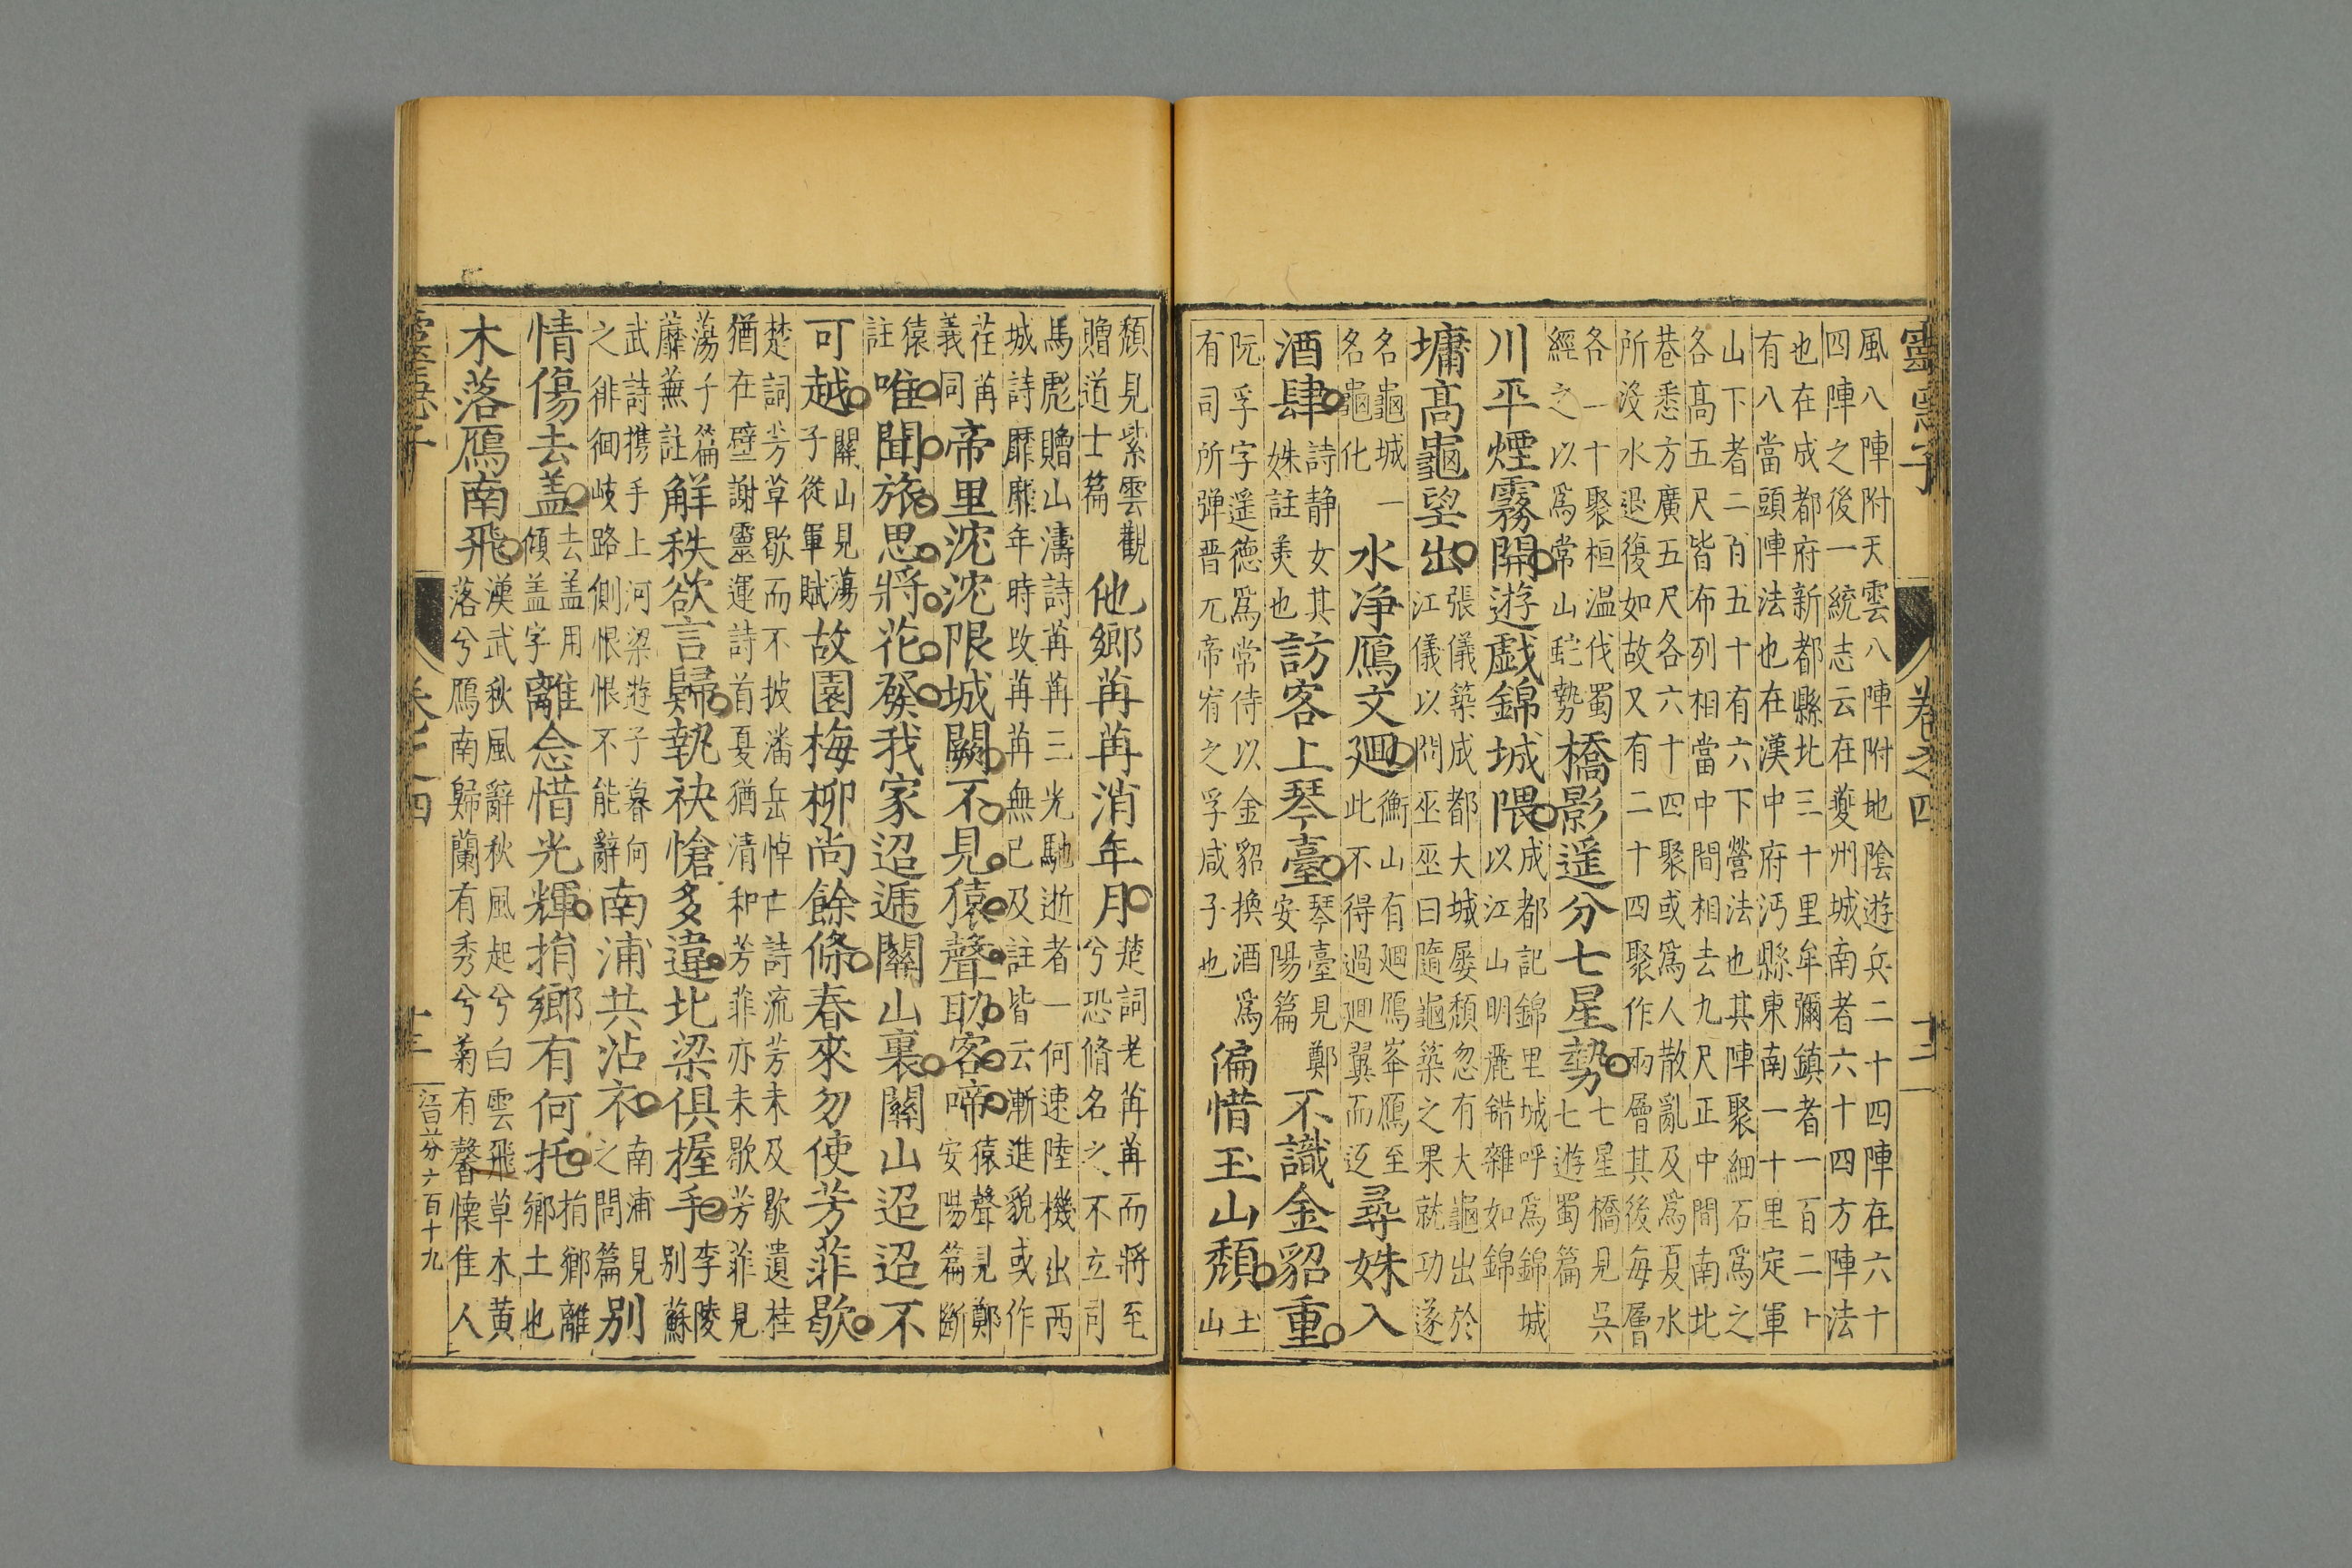 靈隱子
卷之四
十二
風八陣附天雲八陣附地陰遊兵二十四陣在六十
四陣之後一統志云在夔州城南者六十四方陣法
也在成都府新都縣北三十里牟彌鎮者一百二十
有八當頭陣法也在漢中府沔縣東南一十里定軍
山下者二百五十有六下營法也其陣聚細石爲之
各高五尺皆布列相當中間相去九尺正中間南北
巷悉方廣五尺各六十四聚或爲人散亂及爲夏水
所沒水退復如故又有二十四聚作兩層其後每層
各一十聚桓温伐蜀
經之以爲常山蛇勢
橋影遥分七星勢
七星橋見吳
七遊蜀篇
川平煙霧開遊戯錦城隈
成都記錦里城呼爲錦城
以江山明麗錯雜如錦
墉高龜望出
張儀築成都大城屡頽忽有大龜出於
江儀以問巫巫曰隨龜築之果就功遂
名龜城一
名龜化
水净鴈文廻
衡山有廻鴈峯鴈至
此不得過廻翼而返
尋姝入
酒肆
詩静女其
姝註美也
訪客上琴臺
琴臺見鄭
安陽篇
不識金貂重
阮孚字遥德爲常侍以金貂換酒爲
有司所弹晋元帝宥之孚咸子也
偏惜玉山頽
玉
山
頽見紫雲觀
贈道士篇
他鄉苒苒消年月
楚詞老苒苒而將至
兮恐脩名之不立司
馬彪贈山濤詩苒苒三光馳逝者一何速陸機出西
城詩靡靡年時改苒苒無已及註皆云漸進貌或作
荏苒
義同
帝里沈沈限城闕不見猿聲助客啼
猿聲見鄭
安陽篇斷
猿
註
唯聞旅思將花發我家迢遞關山裏關山迢迢不
可越
關山見蕩
子從軍賦
故園梅柳尚餘條春來勿使芳菲歇
楚詞芳草歇而不披潘岳悼亡詩流芳未及歇遺桂
猶在壁謝靈運詩首夏猶清和芳菲亦未歇芳菲見
蕩子篇
蘼蕪註
解秩欲言歸執袂愴多違北梁俱握手
李陵
别蘇
武詩携手上河梁遊子暮何
之徘徊岐路側恨恨不能辭
南浦共沾衣
南浦見
之問篇
别
情傷去盖
去盖用
傾盖字
離念惜光輝捐鄉有何托
捐鄉離
鄉土也
木落鴈南飛
漢武秋風辭秋風起兮白雲飛草木黄
落兮鴈南歸蘭有秀兮菊有馨懷佳人
卷之四
十三
百十九